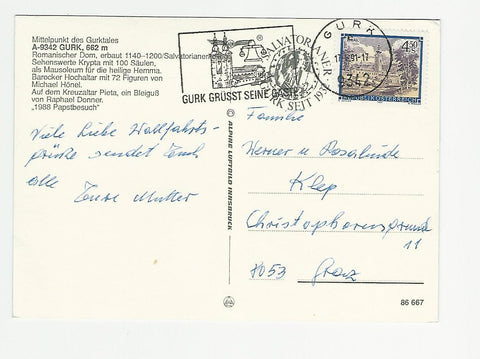 Mittelpunkt des Gurktales
A-9342 GURK, 662 m
Romanischer Dom, erbaut 1140–1200/Salvatorianer
Sehenswerte Krypta mit 100 Säulen,
als Mausoleum für die heilige Hemma.
Barocker Hochaltar mit 72 Figuren von
Michael Hönel.
Auf dem Kreuzaltar Pieta, ein Bleiguß
von Raphael Donner.
„1988 Papstbesuch“
GURK GRÜSST SEINE GÄSTE
SALVATORIANER
GURK SEIT
GURK
9342
4.50
REPUBLIK ÖSTERREICH
Viele liebe Wallfahrts-
grüße sendet Euch
alle
Eure Mutter
© ALPINE LUFTBILD INNSBRUCK
Familie
Werner u Rosalinde
Klep
Christophorusgrund
11
8053 Graz
86 667